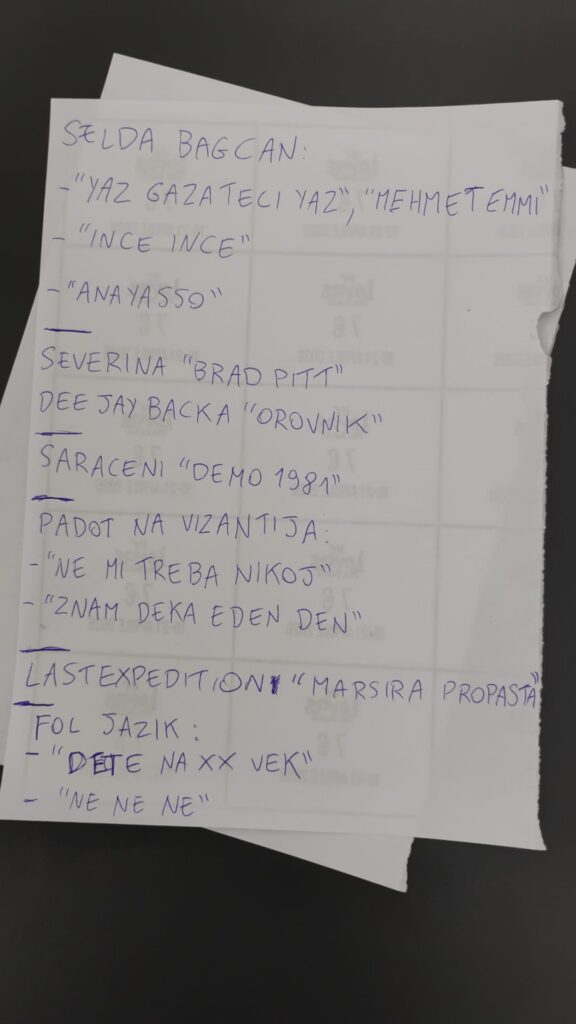 SELDA BAGCAN:
- "YAZ GAZATECI YAZ", "MEHMET EMMI"
- "INCE INCE"
- "ANAYASSO"
SEVERINA "BRAD PITT"
DEE JAY BACKA "OROVNIK"
SARACENI "DEMO 1981"
PADOT NA VIZANTIJA:
- "NE MI TREBA NIKOJ"
- "ZNAM DEKA EDEN DEN"
LAST EXPEDITION "MARSIRA PROPASTA"
FOL JAZIK:
- "DETE NA XX VEK"
- "NE NE NE"